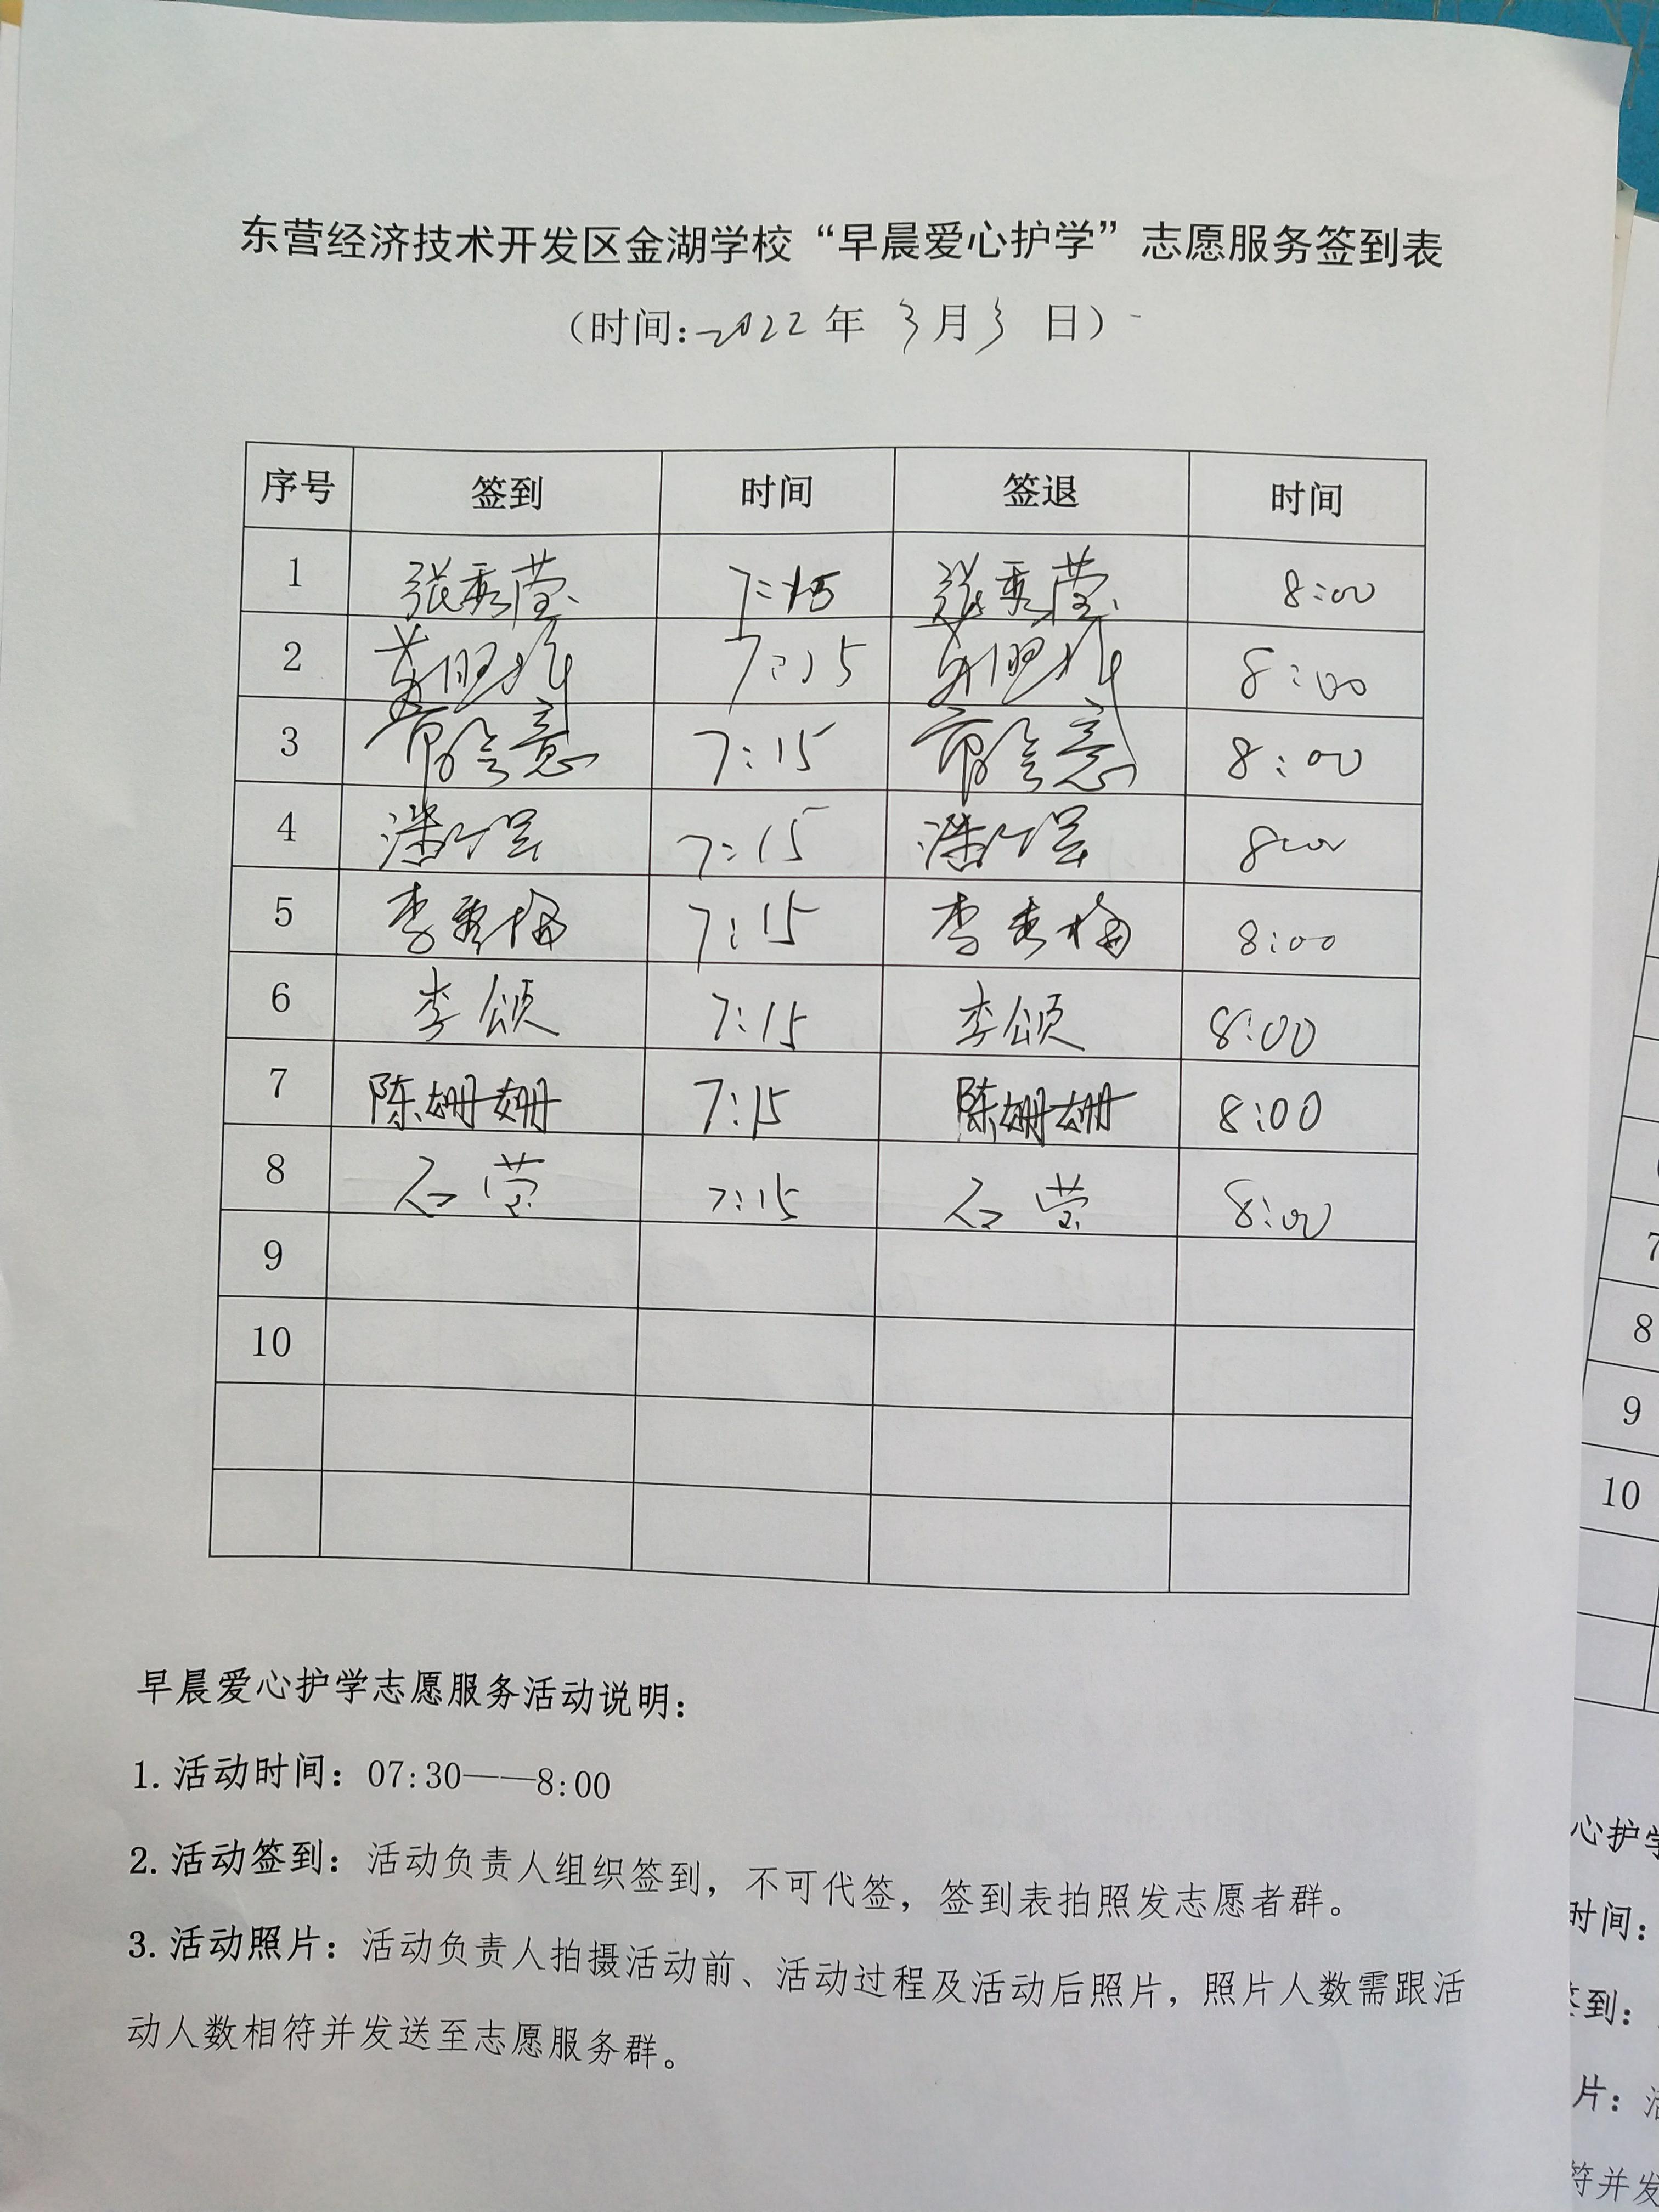 东营经济技术开发区金湖学校“早晨爱心护学”志愿服务签到表
（时间:2022年 3月3 日）
序号 签到 时间 签退 时间
1 张秀莹 7:15 张秀莹 8:00
2 7:15 8:00
3 7:15 8:00
4 7:15 8:00
5 李秀梅 7:15 李秀梅 8:00
6 李颂 7:15 李颂 8:00
7 陈姗姗 7:15 陈姗姗 8:00
8 石莹 7:15 石莹 8:00
9
10
早晨爱心护学志愿服务活动说明：
1. 活动时间：07:30——8:00
2. 活动签到：活动负责人组织签到，不可代签，签到表拍照发志愿者群。
3. 活动照片：活动负责人拍摄活动前、活动过程及活动后照片，照片人数需跟活
动人数相符并发送至志愿服务群。
7
8
9
10
心护学
时间：
签到：
片：活
符并发